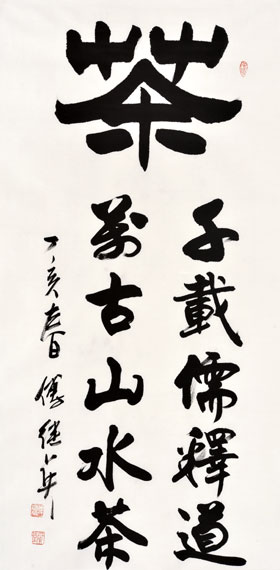 茶
千載儒釋道
萬古山水茶
丁亥春日